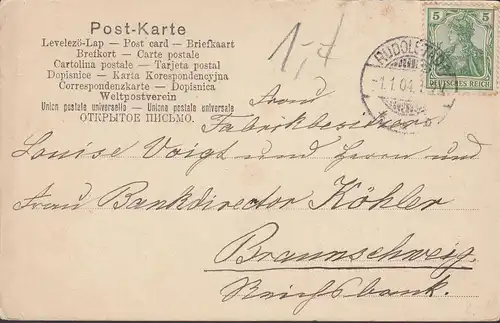 Post-Karte
Levelező-Lap — Post card — Briefkaart
Brefkort — Carte postale
Cartolina postale — Tarjeta postal
Dopisnice — Karta Korespondencyjna
Correspondenzkarte — Dopisnica
Weltpostverein
Union postale universelle — Unione postale universale
ОТКРЫТОЕ ПИСЬМО.
1,-
5 5
DEUTSCHES REICH
RUDOLSTADT
-1.1.04.
Frau
Fabrikbesitzer
Louise Voigt und Herrn und
Frau Bankdirector Köhler
Braunschweig
Reichsbank.